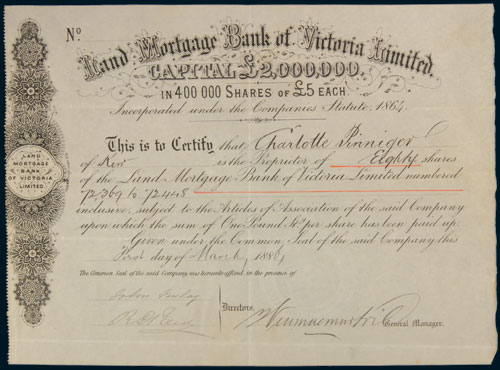 No
Land Mortgage Bank of Victoria Limited.
CAPITAL £2,000,000.
IN 400 000 SHARES OF £5 EACH.
Incorporated under the Companies Statute, 1864.
This is to Certify that Charlotte Pinniger
of Kew is the Proprietor of Eighty shares
of the Land Mortgage Bank of Victoria Limited numbered
72369 to 72448
inclusive, subject to the Articles of Association of the said Company
upon which the sum of One Pound Stg per share has been paid up.
Given under the Common Seal of the said Company this
First day of March 1886
The Common Seal of the said Company was hereunto affixed, in the presence of
Directors.
General Manager.
LAND
MORTGAGE
BANK
OF VICTORIA
LIMITED.